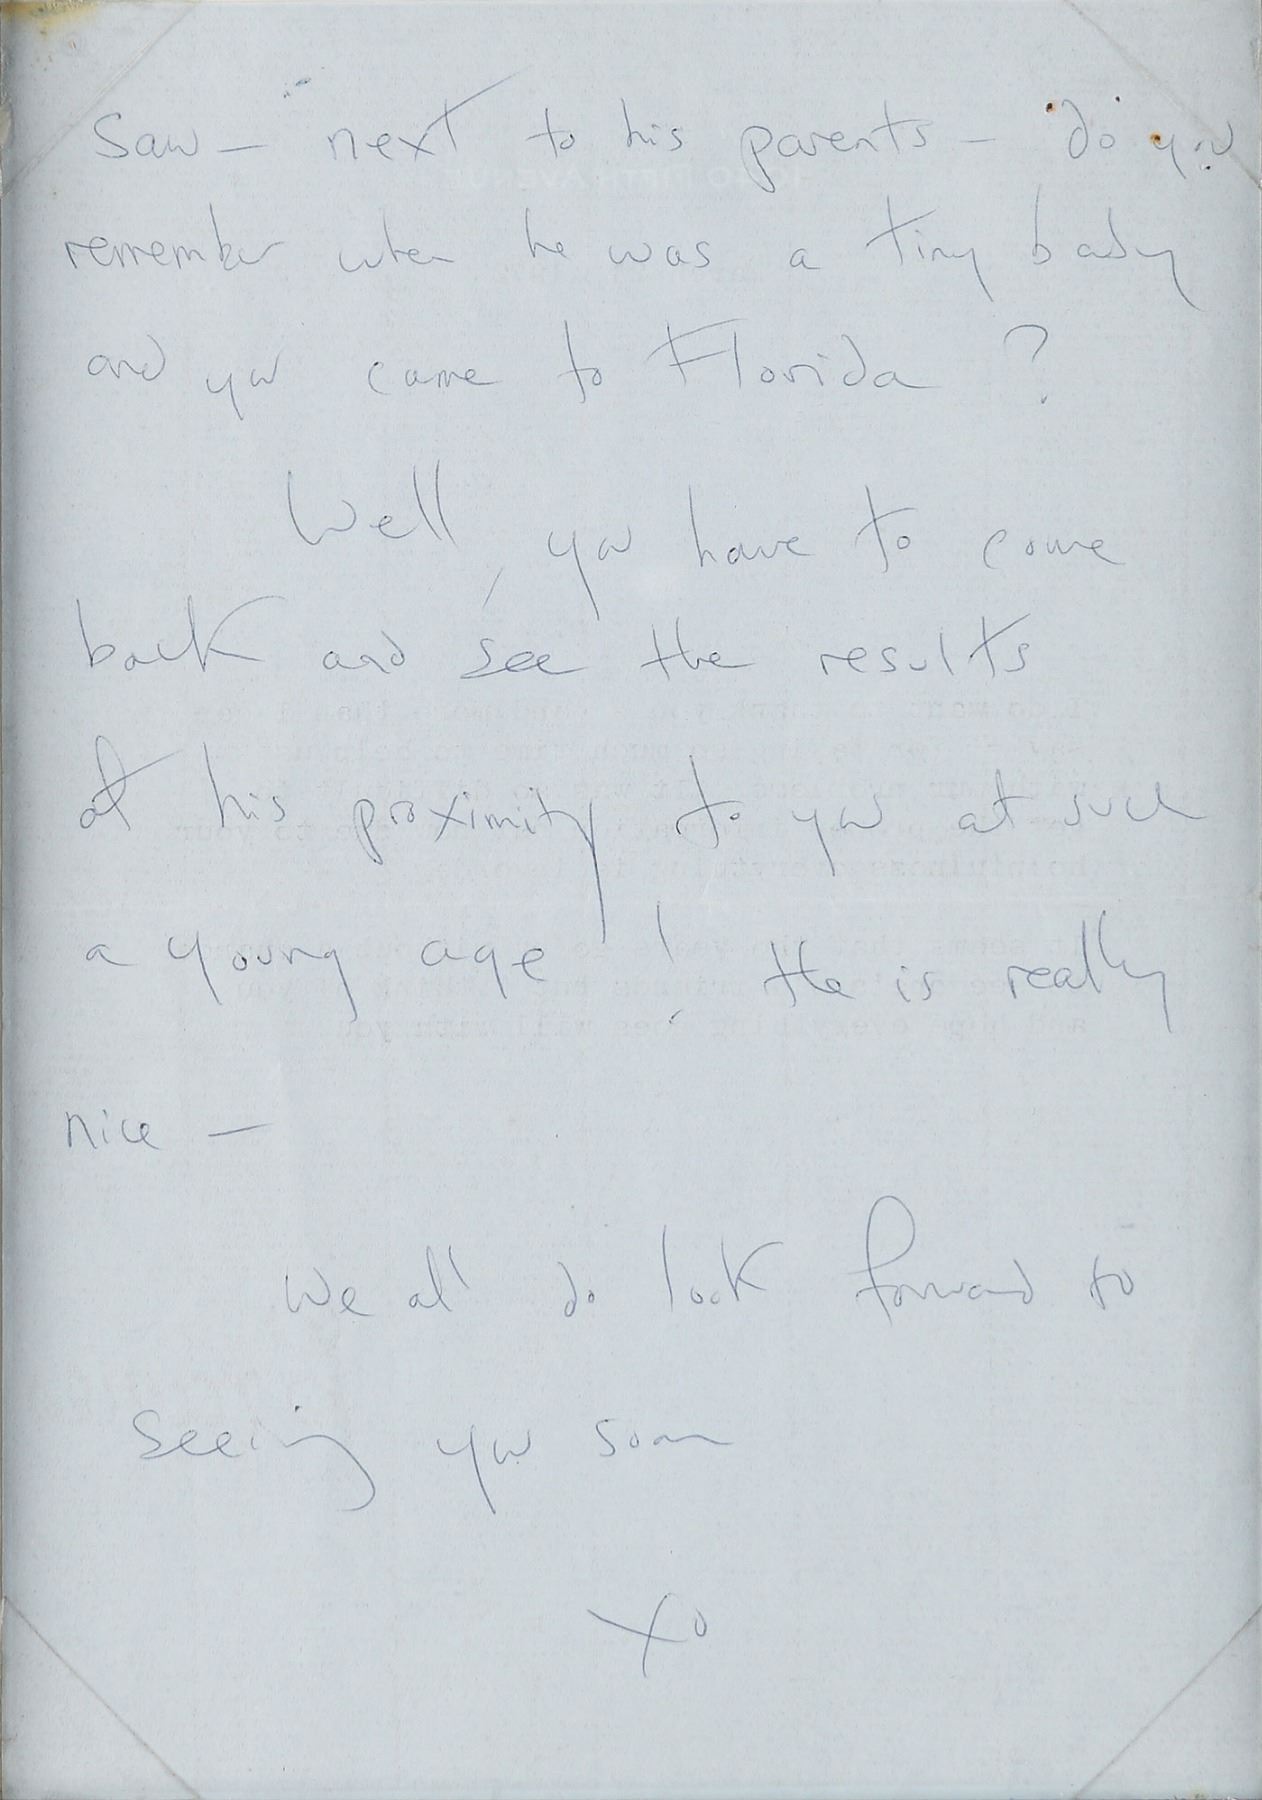 Saw — next to his parents — do you
remember when he was a tiny baby
and you came to Florida ?
Well, you have to come
back and see the results
of his proximity to you at such
a young age ! He is really
nice —
We all do look forward to
seeing you soon
XO